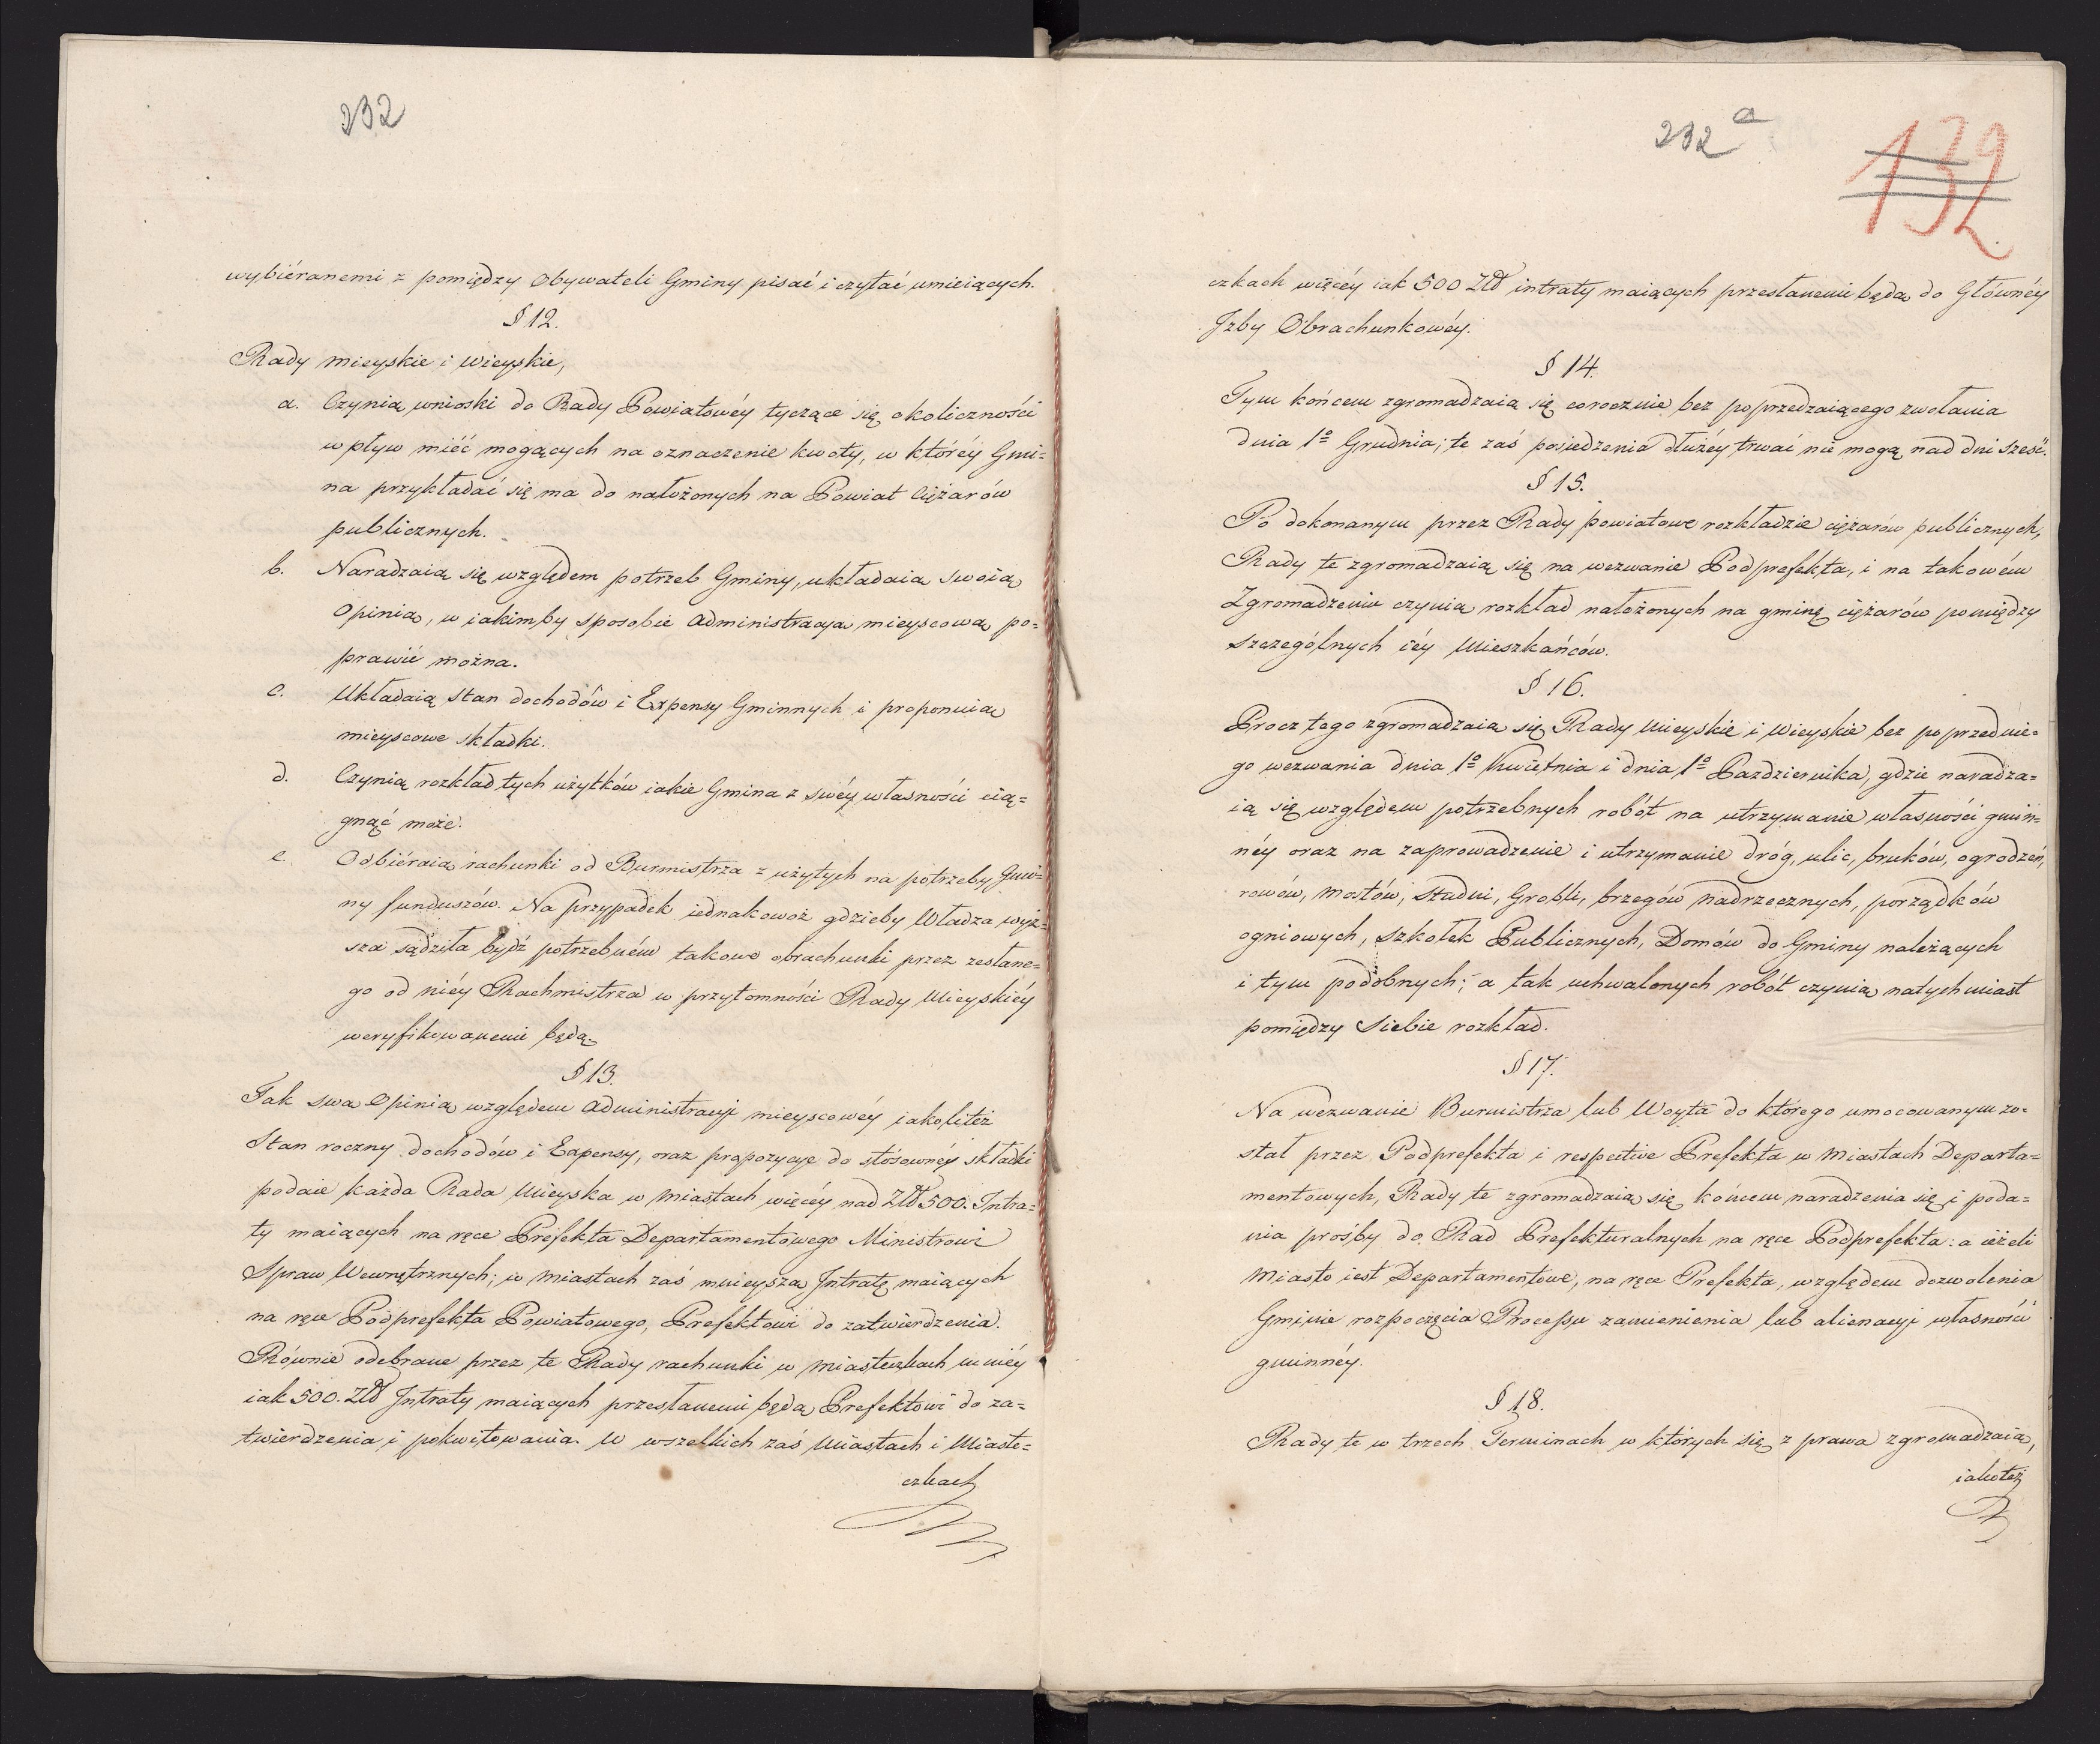 232
wybiéranemi z pomiędzy Obywateli Gminy pisać i czytać umieiących.
§ 12.
Rady mieyskie i Wieyskie,
a. Czynią wnioski do Rady Powiatowéy tyczące się okoliczności
wpływ mićć mogących na oznaczenie kwoty, w któréy Gmi=
na przykładać się ma do nałożonych na Powiat Ciężarów
publicznych.
b. Naradzaią się względem potrzeb Gminy, układaia swoią
Opinią, w iakimby sposobie Administracya mieyscowa po=
prawić można.
c. Układaią stan dochodów i Expensy Gminnych i proponuią
mieyscowe składki.
d. Czynią rozkład tych użytków iakie Gmina z swéy własności cią=
gnąć może.
e. Odbiéraią rachunki od Burmistrza z użytych na potrzeby Gmi=
ny funduszów. Na przypadek iednakowoż gdzieby Władza wyż=
sza sądziła bydź potrzebném takowe obrachunki przez zesłane=
go od niéy Rachmistrza w przytomności Rady Mieyskiéy
weryfikowanemi będą.
§ 13.
Tak swą Opinią względem Administracyi mieyscowéy iakoliteż
Stan roczny dochodów i Expensy, oraz propozycye do stósownéy składki
podaie każda Rada Mieyska w Miastach więcéy nad Złł 500. Intra=
ty maiących na ręce Prefekta Departamentowego Ministrowi
Spraw Wewnętrznych; w Miastach zaś mnieyszą Intratę maiących
na ręce Podprefekta Powiatowego, Prefektowi do zatwierdzenia.
Równie odebrane przez te Rady rachunki w Miasteczkach mniéy
iak 500. Złł Intraty maiących przesłanemi będą Prefektowi do za=
twierdzenia i pokwitowania. W wszelkich zaś Miastach i Miaste=
czkach
232 a
132
czkach więcéy iak 500 Złł intraty maiących przesłanemi będą do Głównéy
Izby Obrachunkowéy.
§ 14.
Tym końcem zgromadzaią się corocznie bez poprzedzaiącego zwołania
dnia 1º Grudnia; te zaś posiedzenia dłużéy trwać nie mogą nad dni sześć.
§ 15.
Po dokonanym przez Rady powiatowe rozkładzie ciężarów publicznych,
Rady te zgromadzaią się na wezwanie Podprefekta, i na takowém
Zgromadzeniu czynią rozkład nałożonych na gminę ciężarów pomiędzy
szczególnych iéy Mieszkańców.
§ 16.
Procz tego zgromadzaią się Rady Mieyskie i Wieyskie bez poprzednie=
go wezwania dnia 1º Kwietnia i dnia 1º Pazdziernika, gdzie naradza=
ią się względem potrzebnych robót na utrzymanie własności gmin=
néy oraz na zaprowadzenie i utrzymanie dróg, ulic, bruków, ogrodzeń,
rowów, Mostów, Studni, Grobli, brzegów nadrzecznych, porządków
ogniowych, szkołek Publicznych, Domów do Gminy należących
i tym podobnych; a tak uchwalonych robót czynią natychmiast
pomiędzy Siebie rozkład.
§ 17.
Na wezwanie Burmistrza lub Woyta do którego umocowanym zo=
stał przez Podprefekta i respective Prefekta w Miastach Departa=
mentowych, Rady te zgromadzaią się końcem naradzenia się i poda=
nia prośby do Rad Prefekturalnych na ręce Podprefekta: a ieżeli
Miasto iest Departamentowe, na ręce Prefekta, względem dozwolenia
Gminie rozpoczęcia Processu zamienienia lub alienacyi własności
gminnéy.
§ 18.
Rady te w trzech Terminach w których się z prawa zgromadzaią,
iakoteż